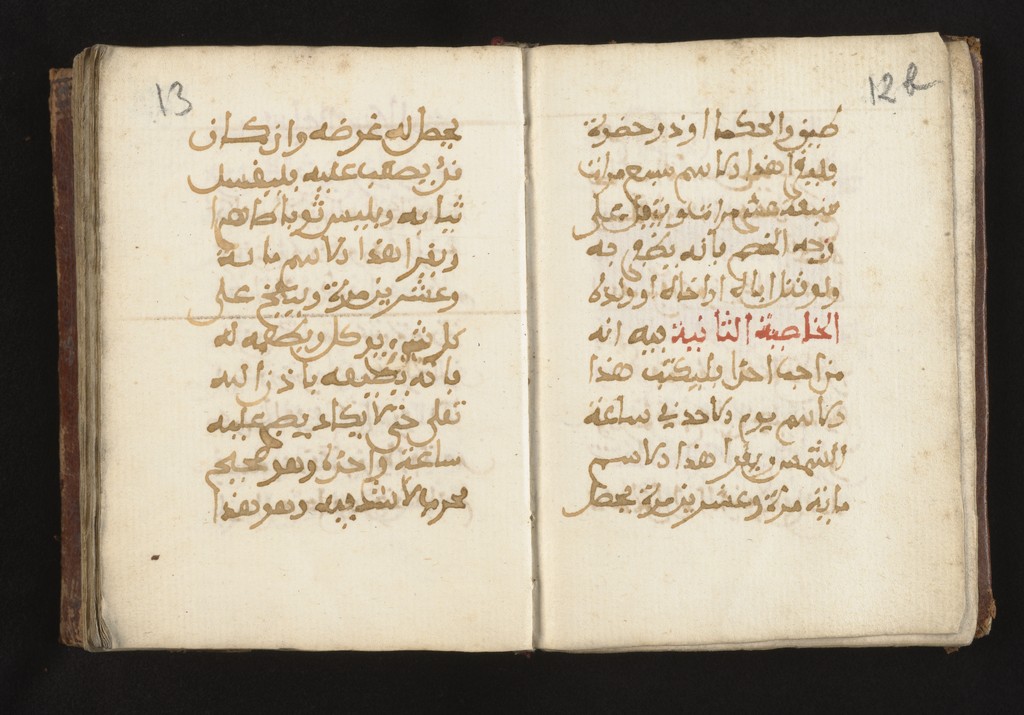 12 b
والحكما او ذو حضرة
هذا الاسم سبع مرات
على
وجه الخصم بانه يقضي به
ولو قتل اباه او اخاه او ولده
الخاصية الثانية فيه انه
من احب احدا فليكتب هذا
الاسم يوم الاحد في ساعة
الشمس ويقرا هذا الاسم
ماية مرة وعشرين مرة يحصل
13
يحصل له غرضه وان كان
يصعب عليه فليغسل
ثيابه ويلبس ثوبا طاهرا
ويقرا هذا الاسم مائة
وعشرين مرة على
كل شيء
بانه يطيعه باذن الله
تعلى حتى لا يكاد يصبر عليه
ساعة واحدة وهو صحيح
مجرب لا شك فيه وهو هذا